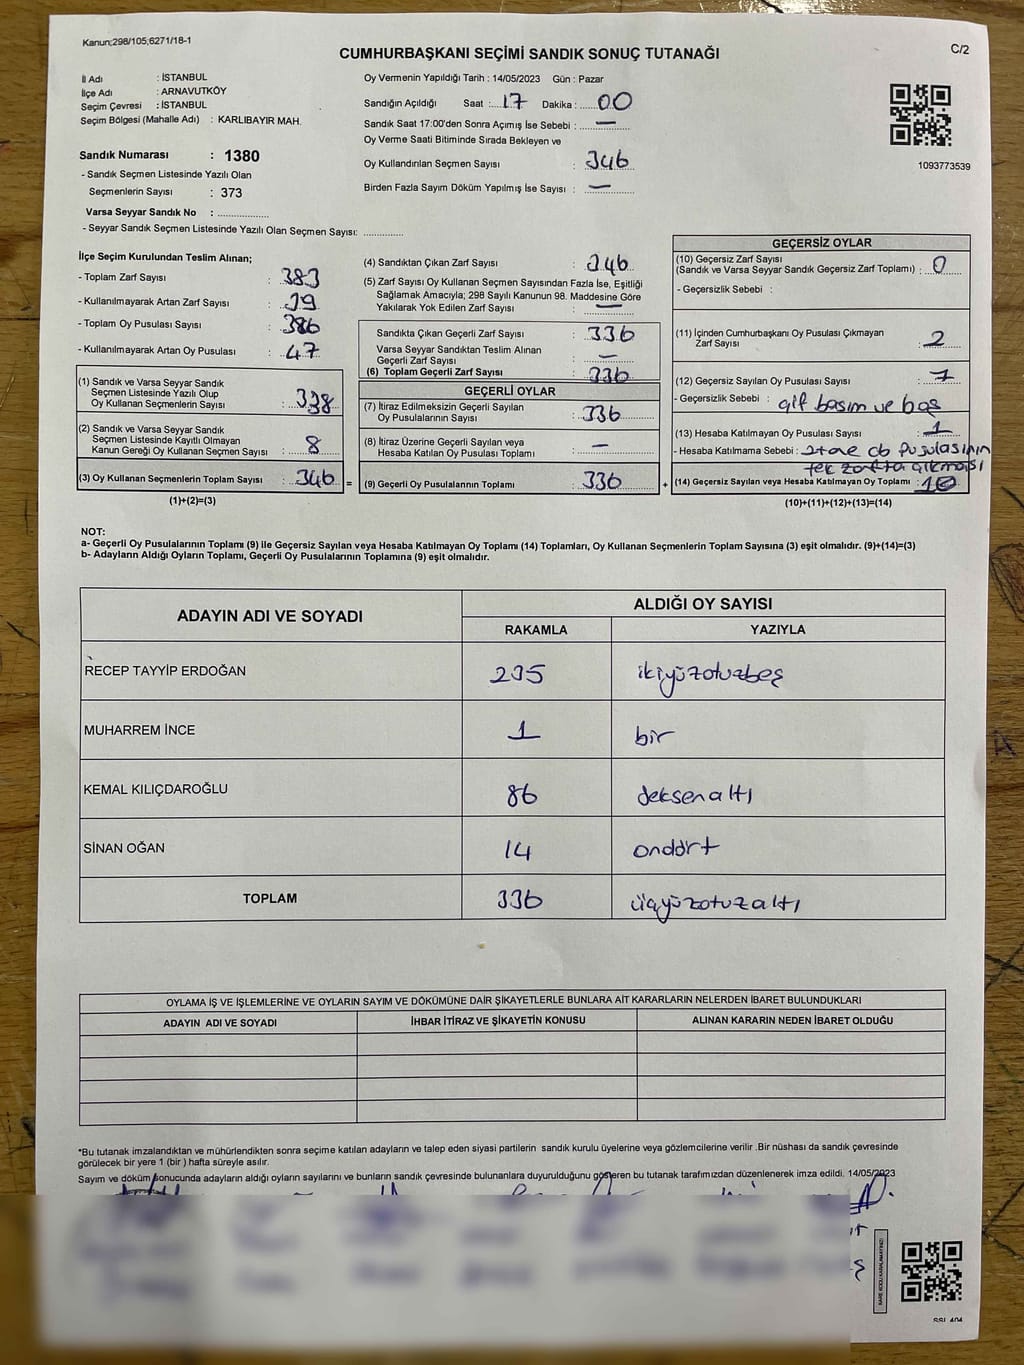 Kanun;298/105;6271/18-1
CUMHURBAŞKANI SEÇİMİ SANDIK SONUÇ TUTANAĞI
C/2
İl Adı : İSTANBUL
İlçe Adı : ARNAVUTKÖY
Seçim Çevresi : İSTANBUL
Seçim Bölgesi (Mahalle Adı) : KARLIBAYIR MAH.
Sandık Numarası : 1380
- Sandık Seçmen Listesinde Yazılı Olan
Seçmenlerin Sayısı : 373
Varsa Seyyar Sandık No :
- Seyyar Sandık Seçmen Listesinde Yazılı Olan Seçmen Sayısı:
Oy Vermenin Yapıldığı Tarih : 14/05/2023 Gün : Pazar
Sandığın Açıldığı Saat : 17 Dakika : 00
Sandık Saat 17:00'den Sonra Açımış İse Sebebi : —
Oy Verme Saati Bitiminde Sırada Bekleyen ve
Oy Kullandırılan Seçmen Sayısı : 346
Birden Fazla Sayım Döküm Yapılmış İse Sayısı : —
1093773539
İlçe Seçim Kurulundan Teslim Alınan;
- Toplam Zarf Sayısı : 383
- Kullanılmayarak Artan Zarf Sayısı :
- Toplam Oy Pusulası Sayısı : 386
- Kullanılmayarak Artan Oy Pusulası : 47
(1) Sandık ve Varsa Seyyar Sandık
Seçmen Listesinde Yazılı Olup
Oy Kullanan Seçmenlerin Sayısı : 338
(2) Sandık ve Varsa Seyyar Sandık
Seçmen Listesinde Kayıtlı Olmayan
Kanun Gereği Oy Kullanan Seçmen Sayısı : 8
(3) Oy Kullanan Seçmenlerin Toplam Sayısı : 346
(1)+(2)=(3)
=
(4) Sandıktan Çıkan Zarf Sayısı : 346
(5) Zarf Sayısı Oy Kullanan Seçmen Sayısından Fazla İse, Eşitliği
Sağlamak Amacıyla; 298 Sayılı Kanunun 98. Maddesine Göre
Yakılarak Yok Edilen Zarf Sayısı : —
Sandıkta Çıkan Geçerli Zarf Sayısı : 336
Varsa Seyyar Sandıktan Teslim Alınan
Geçerli Zarf Sayısı : —
(6) Toplam Geçerli Zarf Sayısı : 336
GEÇERLİ OYLAR
(7) İtiraz Edilmeksizin Geçerli Sayılan
Oy Pusulalarının Sayısı : 336
(8) İtiraz Üzerine Geçerli Sayılan veya
Hesaba Katılan Oy Pusulası Toplamı : —
(9) Geçerli Oy Pusulalarının Toplamı : 336
+
GEÇERSİZ OYLAR
(10) Geçersiz Zarf Sayısı
(Sandık ve Varsa Seyyar Sandık Geçersiz Zarf Toplamı) : 0
- Geçersizlik Sebebi :
(11) İçinden Cumhurbaşkanı Oy Pusulası Çıkmayan
Zarf Sayısı : 2
(12) Geçersiz Sayılan Oy Pusulası Sayısı : 7
- Geçersizlik Sebebi : çift basım ve boş
(13) Hesaba Katılmayan Oy Pusulası Sayısı : 1
- Hesaba Katılmama Sebebi : 2 tane cb Pusulasının
tek zarfta çıkması
(14) Geçersiz Sayılan veya Hesaba Katılmayan Oy Toplamı : 10
(10)+(11)+(12)+(13)=(14)
NOT:
a- Geçerli Oy Pusulalarının Toplamı (9) ile Geçersiz Sayılan veya Hesaba Katılmayan Oy Toplamı (14) Toplamları, Oy Kullanan Seçmenlerin Toplam Sayısına (3) eşit olmalıdır. (9)+(14)=(3)
b- Adayların Aldığı Oyların Toplamı, Geçerli Oy Pusulalarının Toplamına (9) eşit olmalıdır.
ADAYIN ADI VE SOYADI
ALDIĞI OY SAYISI
RAKAMLA YAZIYLA
RECEP TAYYİP ERDOĞAN 235 ikiyüzotuzbeş
MUHARREM İNCE 1 bir
KEMAL KILIÇDAROĞLU 86 seksenaltı
SİNAN OĞAN 14 ondört
TOPLAM 336 üçyüzotuzaltı
OYLAMA İŞ VE İŞLEMLERİNE VE OYLARIN SAYIM VE DÖKÜMÜNE DAİR ŞİKAYETLERLE BUNLARA AİT KARARLARIN NELERDEN İBARET BULUNDUKLARI
ADAYIN ADI VE SOYADI İHBAR İTİRAZ VE ŞİKAYETİN KONUSU ALINAN KARARIN NEDEN İBARET OLDUĞU
*Bu tutanak imzalandıktan ve mühürlendikten sonra seçime katılan adayların ve talep eden siyasi partilerin sandık kurulu üyelerine veya gözlemcilerine verilir .Bir nüshası da sandık çevresinde
görülecek bir yere 1 (bir ) hafta süreyle asılır.
Sayım ve döküm sonucunda adayların aldığı oyların sayılarını ve bunların sandık çevresinde bulunanlara duyurulduğunu gösteren bu tutanak tarafımızdan düzenlenerek imza edildi. 14/05/2023
KARE KODU KARALAMAYINIZ!